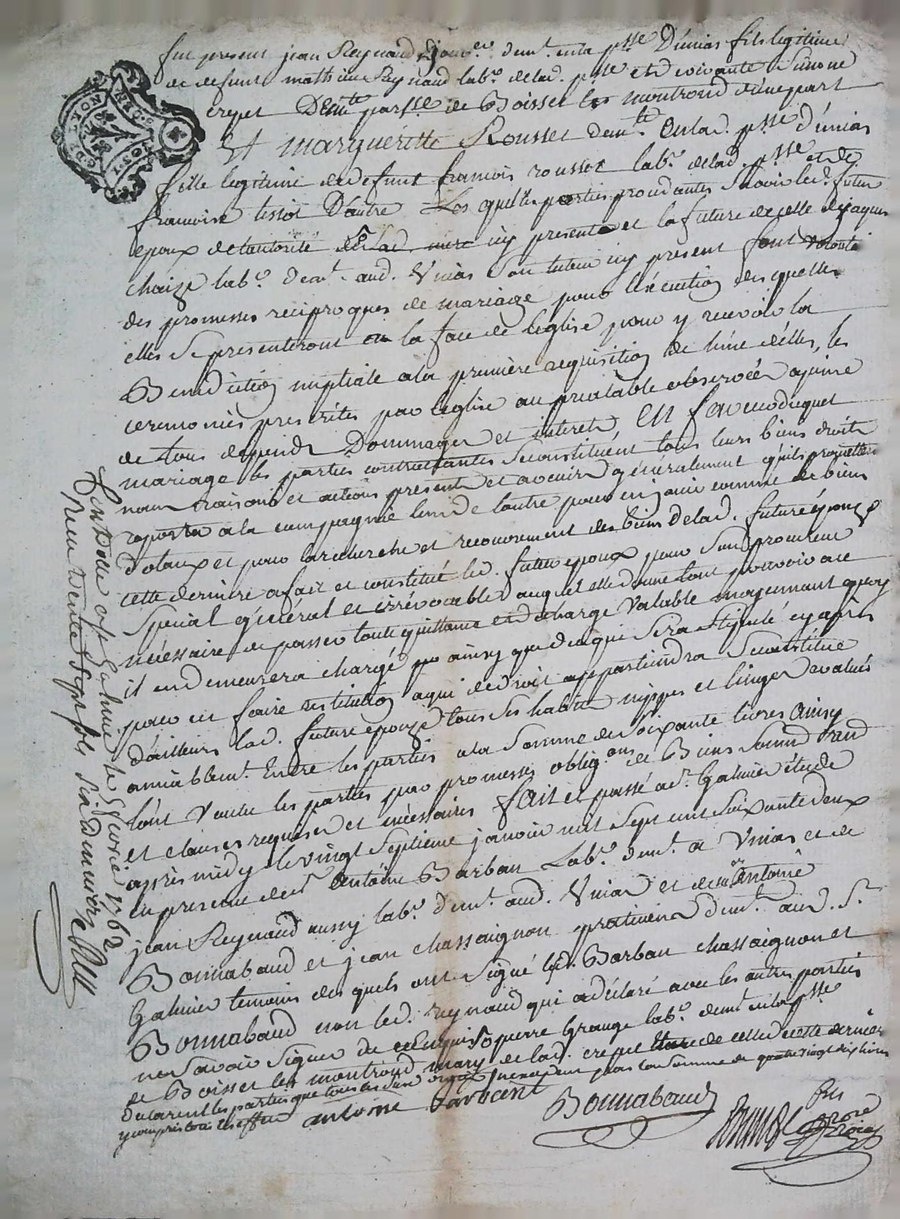 fut present jean Reynaud demt. en la psse D'unias fils legitime
de defunt mathieu Reynaud labr. de lad. psse et de vivante Simone
crepet Demte. parsse de Boisset les montrond d'une part
Et margueritte Rousset demte. en lad. psse d'unias
fille legitime de defunt francois rousset labr. de lad. psse et de
francoise tissot D'autre Les quelles parties procedantes Savoir led. futur
epoux de l'autorité de lad. mere icy presente et la future de celle de jaques
chaize labr. demt. aud. Unias Son tuteur icy present font
des promesses reciproques de mariage pour l'exécution des quelles
elles Se presenteront en la face de l'eglise pour y recevoir la
Benediction nuptiale a la première requisition de l'une d'elles, les
ceremonies prescrites par l'eglise au prealable observées a peine
de tous depends Dommages et interets, En faveur duquel
mariage les parties contractantes Se constituent tous leurs biens droits
noms raisons et actions present et avenir generalement qu'ils promettent
raporter a la compagnie l'un de l'autre pour en jouir comme de biens
Dotaux et pour la recherche et recouvrement des biens de lad. future épouze
cette derniere a fait et constitué led. futur epoux pour Son procureur
Special général et irrévocable, auquel elle donne tout pouvoir a ce
nécessaire de passer toute quittance et décharge valable moyennant quoy
il en demeurera chargé ainsy que de ce qui Sera Stipulé cy après
pour en faire restitution a qui de droit appartiendra Se constitue
d'ailleurs lad. future epouze tous Ses habits nippes et linges evalués
amiablemt. Entre les parties a la Somme de Soixante livres ainsy
l'ont voulu les parties par promesses obligons. de Biens Soumd. rend.
et clauses requises et nécessaires fait et passé a St. Galmier étude
après midy le vingt Septieme janvier mil Sept cent Soixante deux
en present de Sr. Antoine Barban Labr. demt. a Unias et de
jean Reynaud aussy labr. demt. aud. Unias et de mr. Antoine
Bonnabaud et jean Chassaignon praticiens demt. aud. St.
Galmier temoins des quels ont Signé led. Barban Chassaignon et
Bonnabaud non led. reynaud qui a déclaré avec les autres parties
ne Savoir Signer de ce enquis pierre Grange labr. demt. en la psse
de Boisset les montrond mary de lad. crepet de cette derniere
Declarent les parties que tous les Sus n'excedent pas la Somme de quatre vingt dix livres
y compris tous les effets antoine
Bonnabaud
Controllé a St Galmier le fevrier 1762
Reçu trente Sept Sols Six deniers